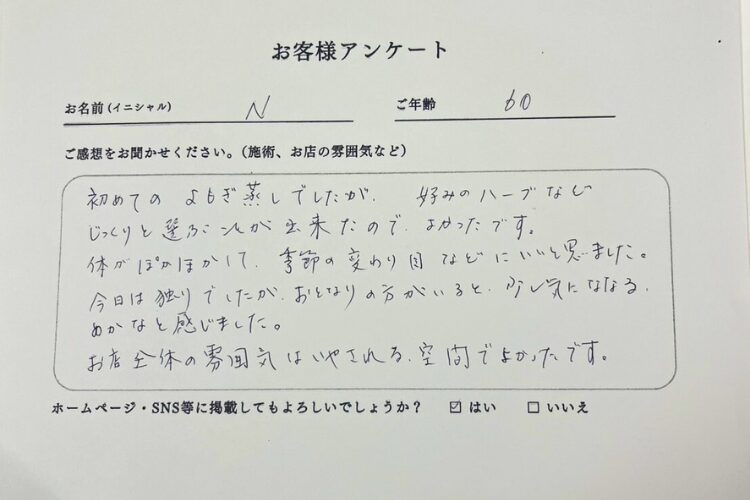 お客様アンケート
お名前(イニシャル) N ご年齢 60
ご感想をお聞かせください。(施術、お店の雰囲気など)
初めての よもぎ蒸しでしたが、 好みのハーブなど
じっくりと選ぶことが出来たので、よかったです。
体がぽかぽかして、季節の変わり目などにいいと思いました。
今日は独りでしたが、おとなりの方がいると、少し気になる、
のかなと感じました。
お店全体の雰囲気はいやされる、空間でよかったです。
ホームページ・SNS等に掲載してもよろしいでしょうか? ☑ はい □ いいえ